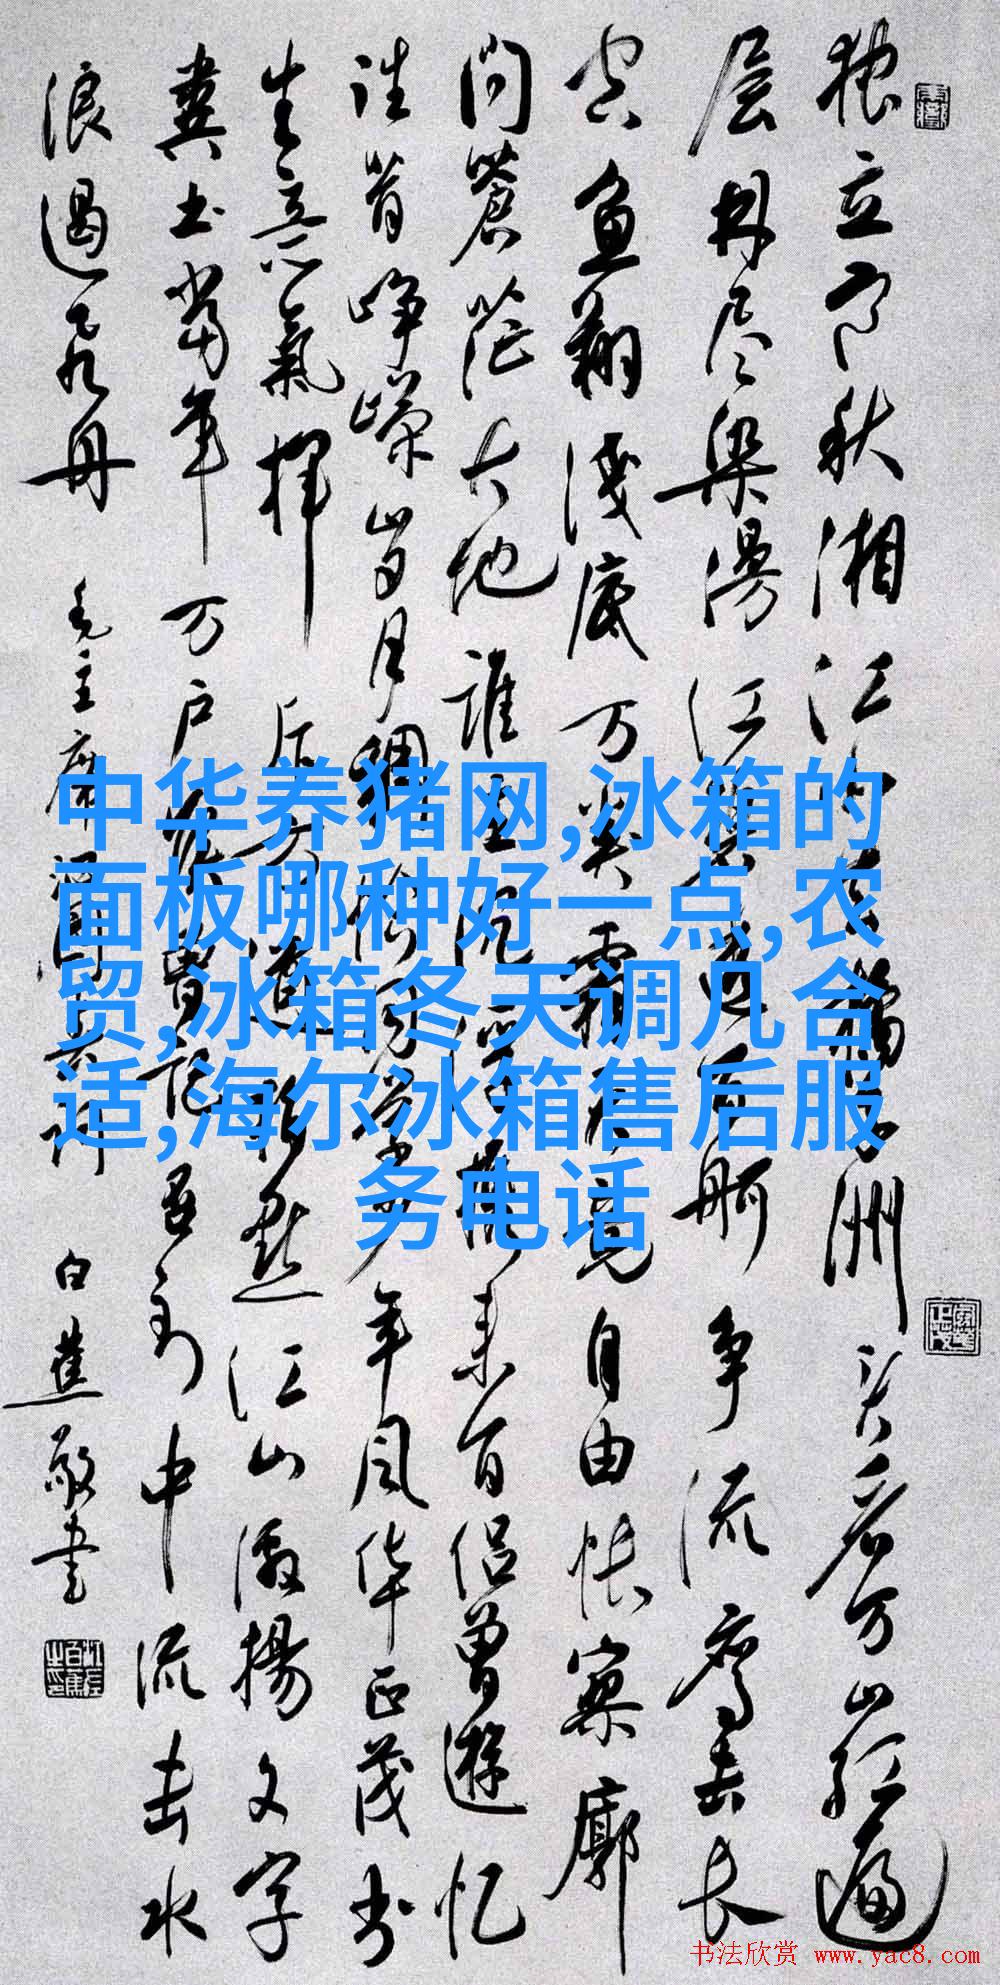 独立寒秋湘江北去橘子洲头看万山红遍
层林尽染漫江碧透百舸争流鹰击长
空鱼翔浅底万类霜天竞自由怅寥廓
问蒼茫大地谁主沉浮携来百侣曾遊忆
往昔峥嵘岁月稠恰同学少年风华正茂书
生意氣挥斥方遒指点江山激揚文字
粪土当年万户侯曾记否到中流击水
浪遏飞舟 毛主席词长沙 白蕉敬书
中华养猪网,冰箱的
面板哪种好一点,农
贸,冰箱冬天调几合
适,海尔冰箱售后服
务电话
书法欣赏 www.yac8.com